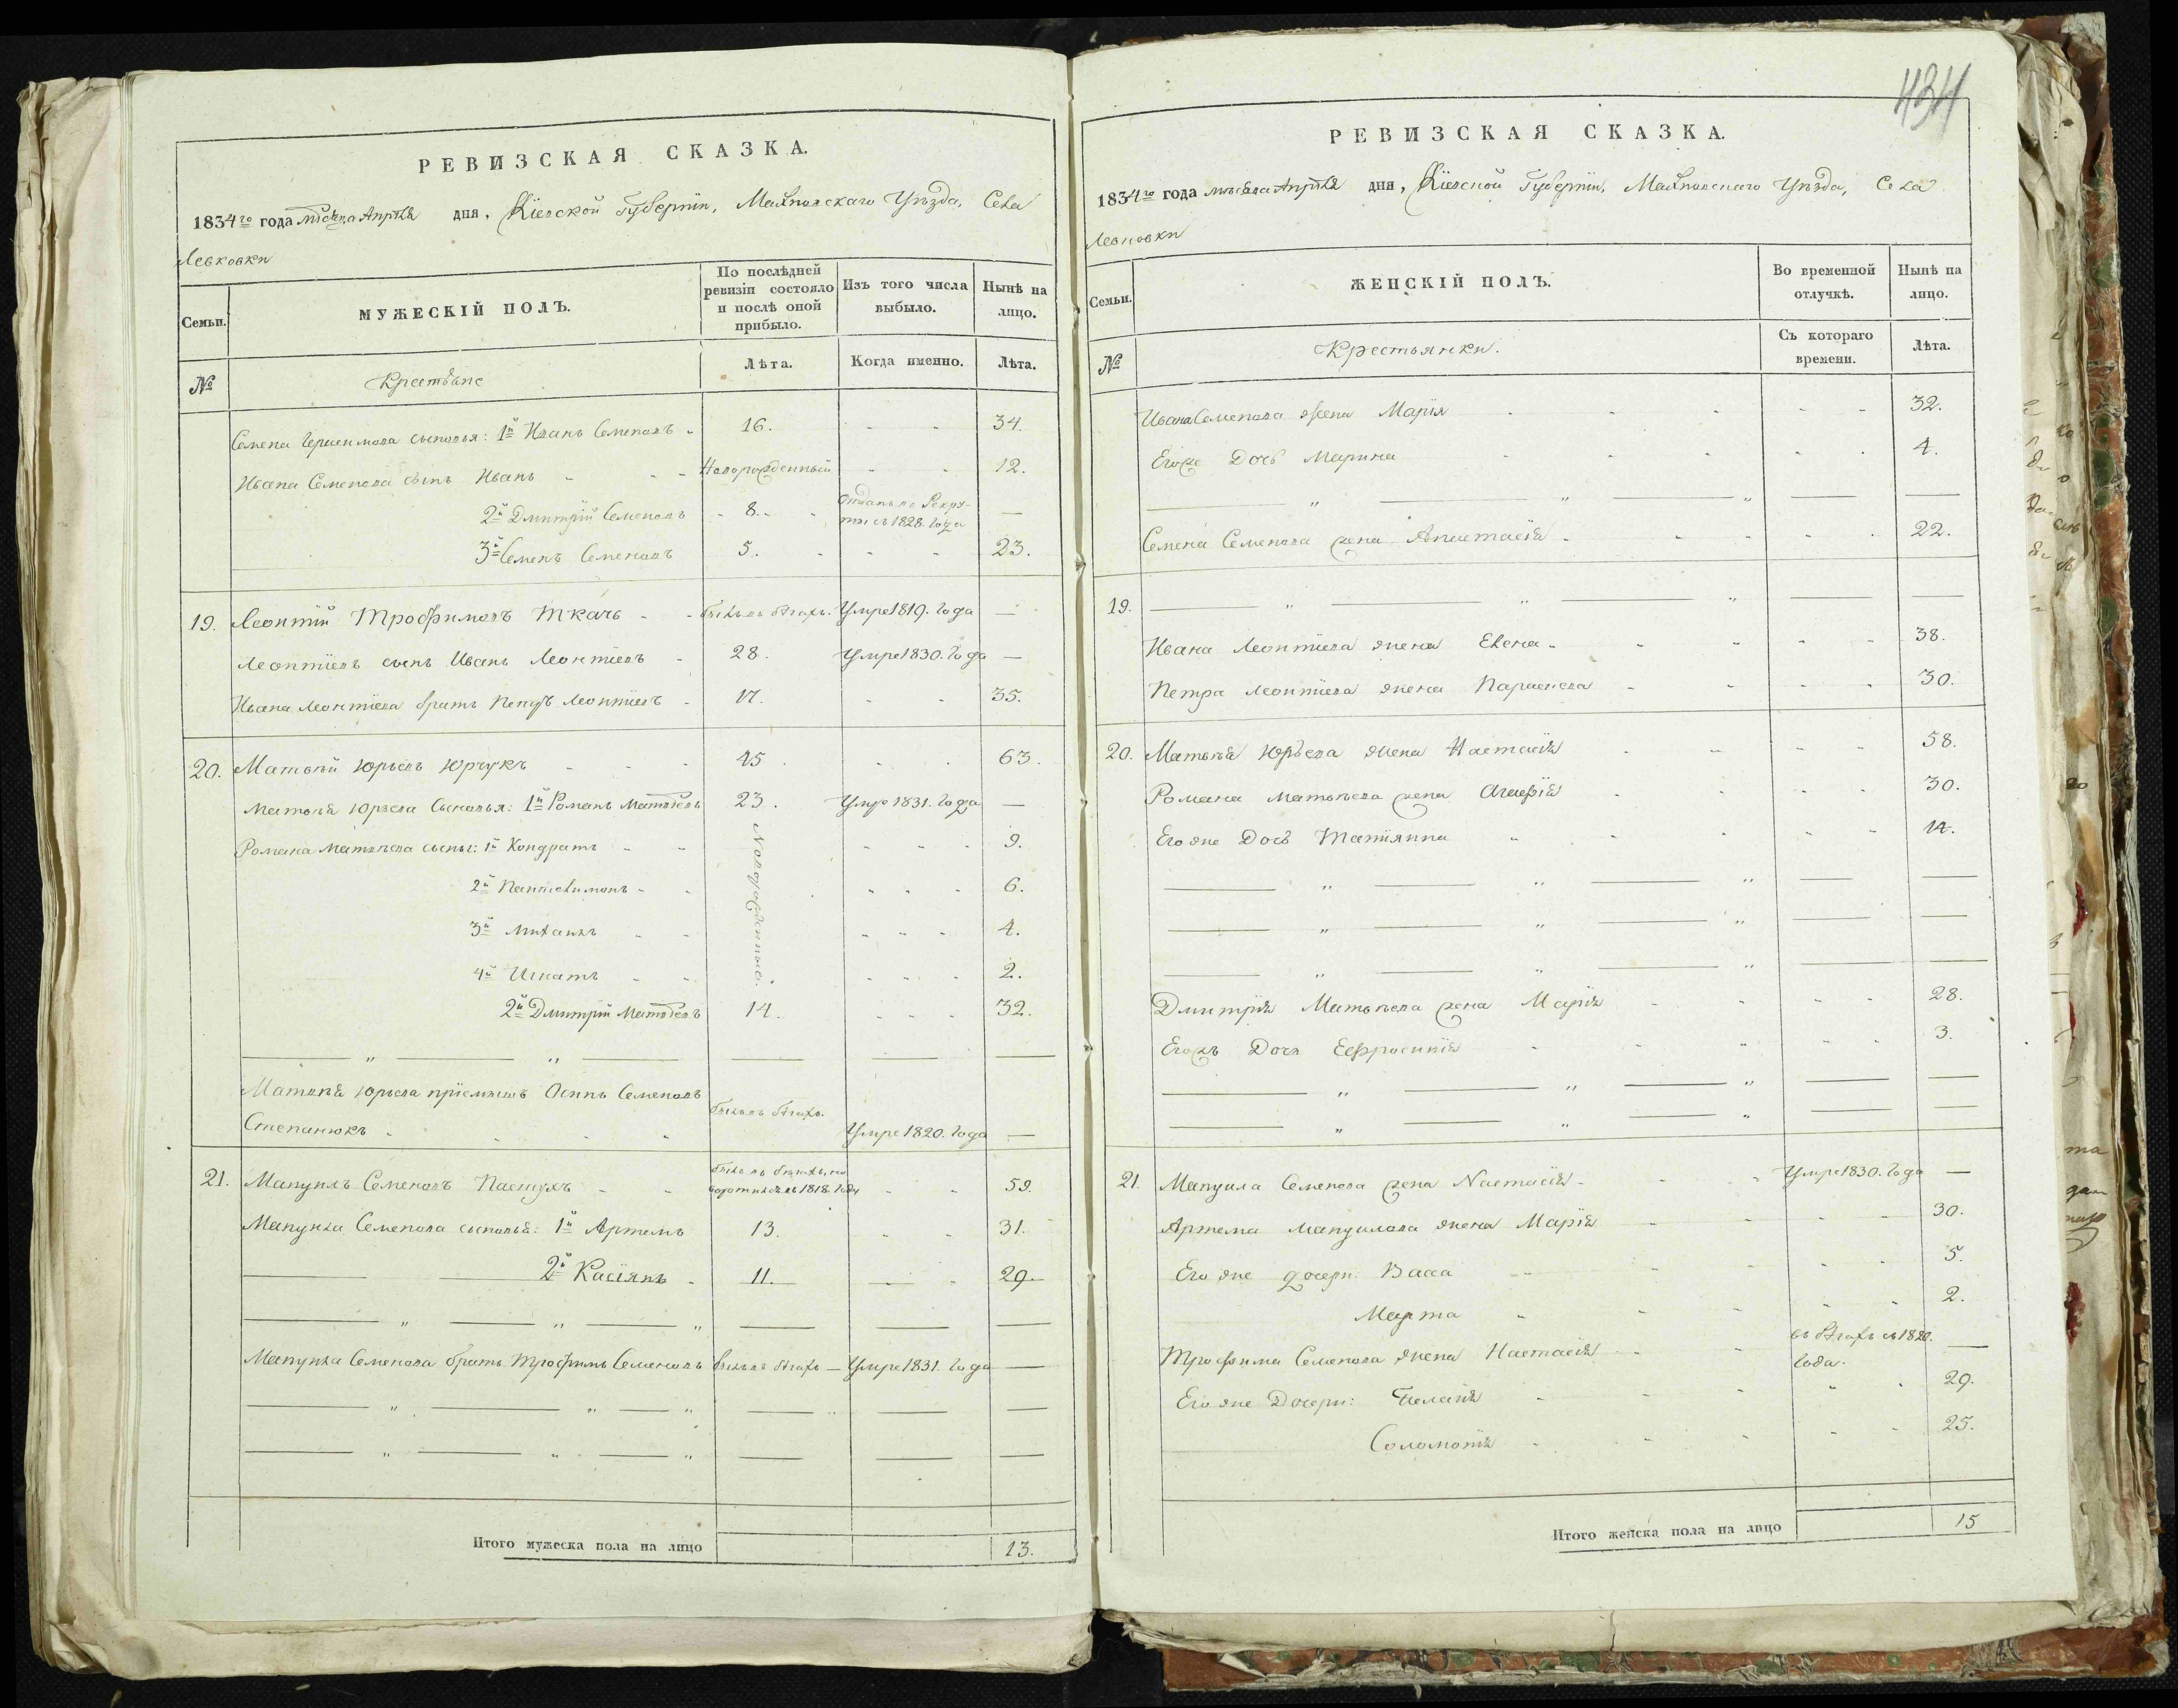 РЕВИЗСКАЯ СКАЗКА.
1834го года месяца Апреля дня, Кіевской Губерніи, Махновскаго Уѣзда, Села
Левковки
Семьи.
МУЖЕСКІЙ ПОЛЪ.
По послѣдней ревизіи состояло и послѣ оной прибыло.
Изъ того числа выбыло.
Нынѣ на лицо.
№
Крестьяне
Лѣта.
Когда именно.
Лѣта.
Семена Герасимова сыновья: 1й Иванъ Семеновъ 16. 34.
Ивана Семенова сынъ Иванъ Новорожденный 12.
2й Дмитрій Семеновъ 8. Отданъ въ Рекруты съ 1828. года —
3й Семенъ Семеновъ 5. 23.
19. Леонтій Трофимовъ Ткачъ былъ въ бѣгахъ. Умре 1819. года —
Леонтіевъ сынъ Иванъ Леонтіевъ 28. Умре 1830. года —
Ивана Леонтіева братъ Петръ Леонтіевъ 17. 35.
20. Матвѣй Юрьевъ Юрчукъ 45. 63.
Матвѣя Юрьева Сыновья: 1й Романъ Матвѣевъ 23. Умре 1831. года —
Романа Матвѣева сыны: 1й Кондратъ 9.
Новорожденные.
2й Пантелимонъ 6.
3й Михаилъ 4.
4й Игнатъ 2.
2й Дмитрій Матвѣевъ 14. 32.
— „ — „ — — — —
Матвѣя Юрьева пріемышъ Осипъ Семеновъ
Степанюкъ былъ въ бѣгахъ. Умре 1820. года —
21. Мануилъ Семеновъ Пастухъ былъ въ бѣгахъ, но воротился въ 1818. году 59.
Мануила Семенова сыновья: 1й Артемъ 13. 31.
2й Касіянъ 11. 29.
— „ — „ — „ — — —
Мануила Семенова братъ Трофимъ Семеновъ былъ въ бѣгахъ — Умре 1831. года —
— „ — „ — „ — — —
— „ — „ — „ — — —
Итого мужеска пола на лицо 13.
434
РЕВИЗСКАЯ СКАЗКА.
1834го года месяца Апреля дня, Кіевской Губерніи, Махновскаго Уѣзда, Села
Левковки
Семьи.
ЖЕНСКІЙ ПОЛЪ.
Во временной отлучкѣ.
Нынѣ на лицо.
№
Крестьянки.
Съ котораго времени.
Лѣта.
Ивана Семенова жена Марія 32.
Егоже Дочь Марина 4.
— „ — „ — „ — —
Семена Семенова жена Анастасія 22.
19. — „ — „ — „ — —
Ивана Леонтіева жена Елена 38.
Петра Леонтіева жена Параскева 30.
20. Матвѣя Юрьева жена Настасія 58.
Романа Матвѣева жена Агафія 30.
Его же Дочь Татіянна 14.
— „ — „ — „ — —
— „ — „ — „ — —
— „ — „ — „ — —
Дмитрія Матвѣева жена Марія 28.
Егожъ Дочь Ефросинія 3.
— „ — „ — „ — —
— „ — „ — „ — —
21. Мануила Семенова жена Настасія Умре 1830. года —
Артема Мануилова жена Марія 30.
Его же дочери: Васса 5.
Марта 2.
Трофима Семенова жена Настасія въ бѣгахъ съ 1820. года. —
Его же Дочери: Пелагія 29.
Соломонія 25.
Итого женска пола на лицо 15